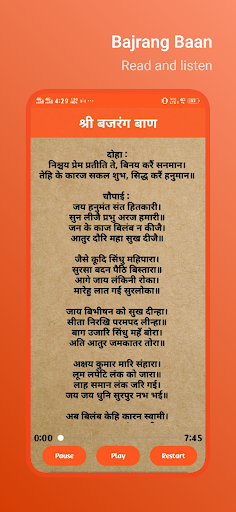 Bajrang Baan
Read and listen
4:29
श्री बजरंग बाण
दोहा :
निश्चय प्रेम प्रतीति ते, बिनय करैं सनमान।
तेहि के कारज सकल शुभ, सिद्ध करैं हनुमान॥
चौपाई :
जय हनुमंत संत हितकारी।
सुन लीजै प्रभु अरज हमारी॥
जन के काज बिलंब न कीजै।
आतुर दौरि महा सुख दीजै॥
जैसे कूदि सिंधु महिपारा।
सुरसा बदन पैठि बिस्तारा॥
आगे जाय लंकिनी रोका।
मारेहु लात गई सुरलोका॥
जाय बिभीषन को सुख दीन्हा।
सीता निरखि परमपद लीन्हा॥
बाग उजारि सिंधु महँ बोरा।
अति आतुर जमकातर तोरा॥
अक्षय कुमार मारि संहारा।
लूम लपेटि लंक को जारा॥
लाह समान लंक जरि गई।
जय जय धुनि सुरपुर नभ भई॥
अब बिलंब केहि कारन स्वामी।
0:00
7:45
Pause
Play
Restart